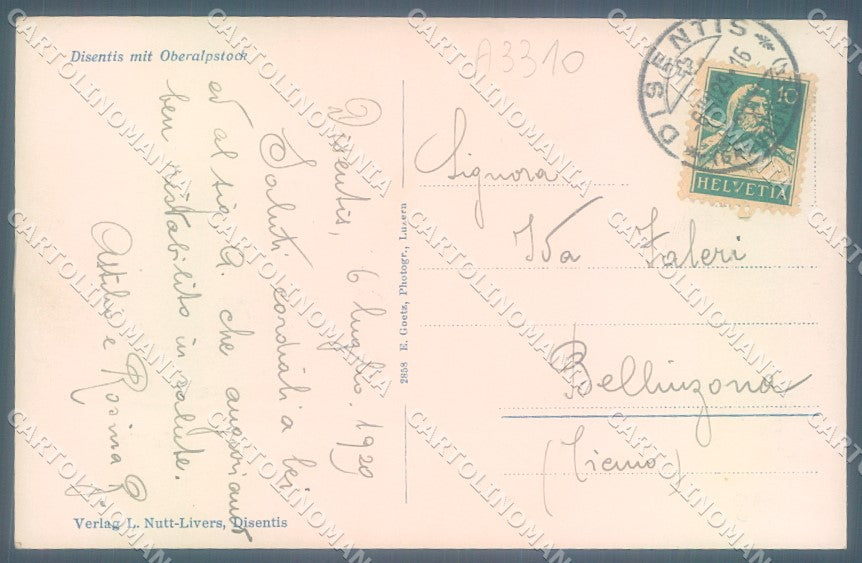 Disentis mit Oberalpstock
A3310
Disentis, 6 luglio. 1929
Saluti cordiali a lei
ed al sig. G. che auguriamo
ben ristabilito in salute.
Attilio e Rosina
2858 E. Goetz, Photogr., Luzern
Verlag L. Nutt-Livers, Disentis
DISENTIS
10
HELVETIA
Signora
Ida Valeri
Bellinzona
(Ticino)
CARTOLINOMANIA